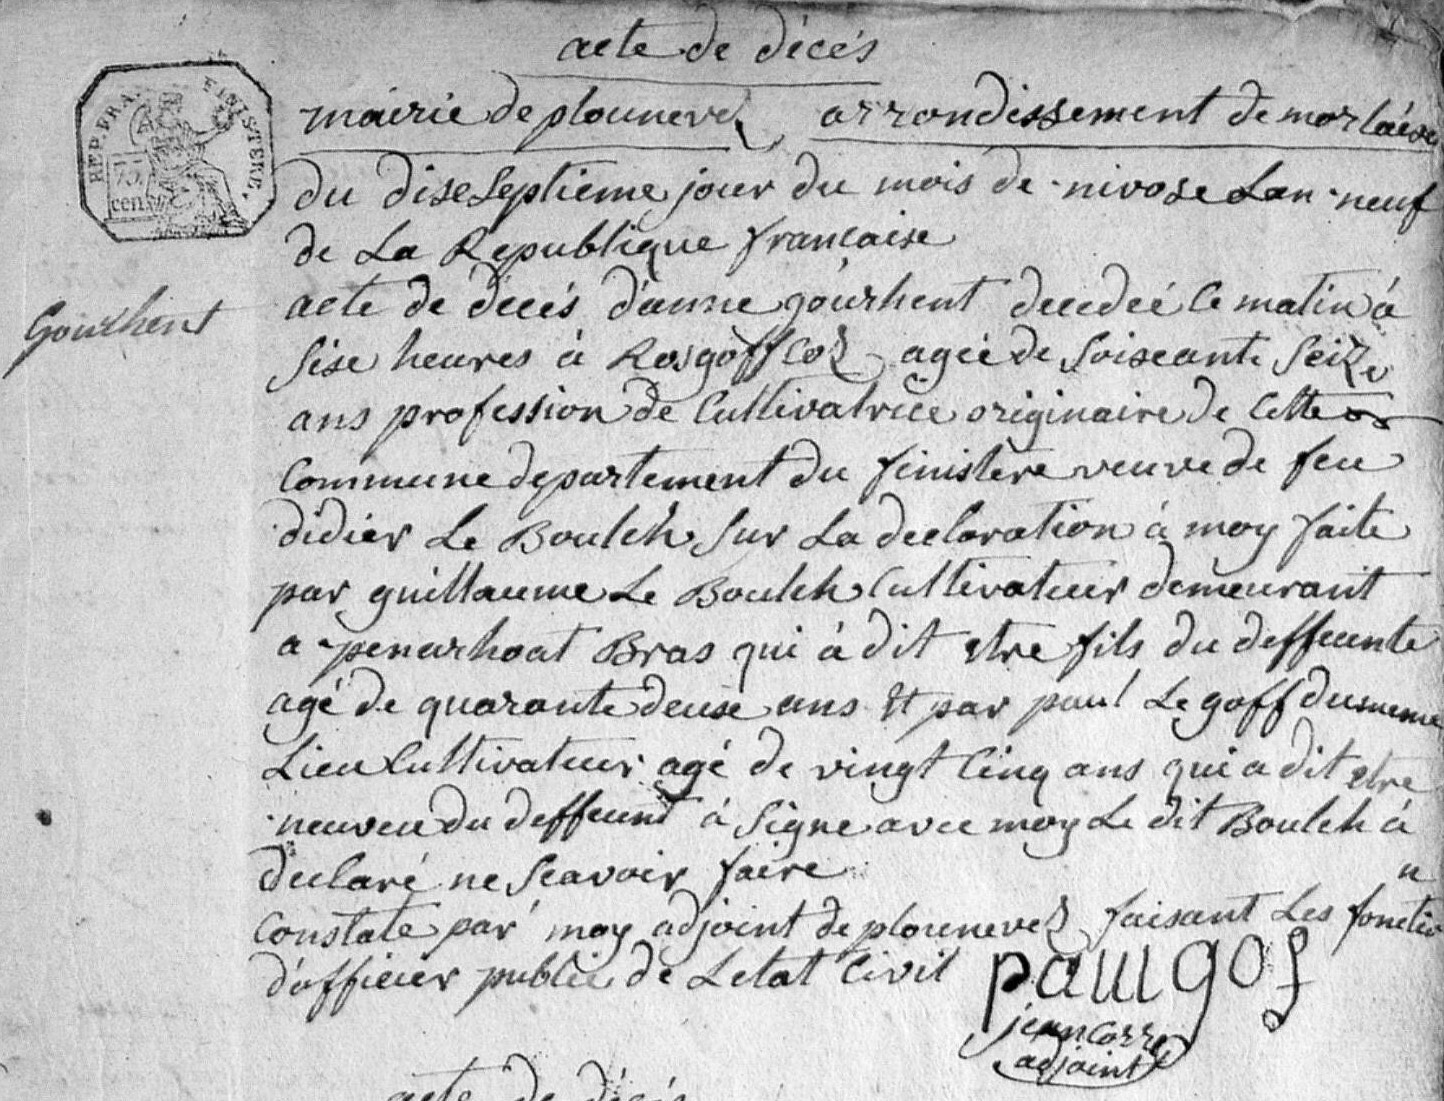 acte de décés
REP. FRA.
FINISTERE.
75
cen
mairie de plounevez arrondissement de morlaise
du diseseptieme jour du mois de nivose Lan neuf
de La Republique francaise
Gourhent
acte de décés d'anne gourhent decedeé Ce matin à
sise heures à Rosgoff Coz ageé de soiseante seize
ans profession de Cultivatrice originaire de Cette
Commune departement du finistere veuve de feu
didier Le Boulch sur La declaration à moy faite
par guillaume Le Boulch Cultivateur demeurant
a penarhoat Bras qui à dit etre fils du deffuente
agé de quarante deuse ans Et par paul Le goff dumeme
Lieu Cultivateur agé de vingt Cinq ans qui a dit etre
neuveu du deffeunt à signe avec moy Le dit Boulch à
declaré ne scavoir faire
Constate par moy adjoint de plounevez faisant Les fonction
d'officier public de Letat Civil
paul gof
jean Corre
adjoint
acte de décés